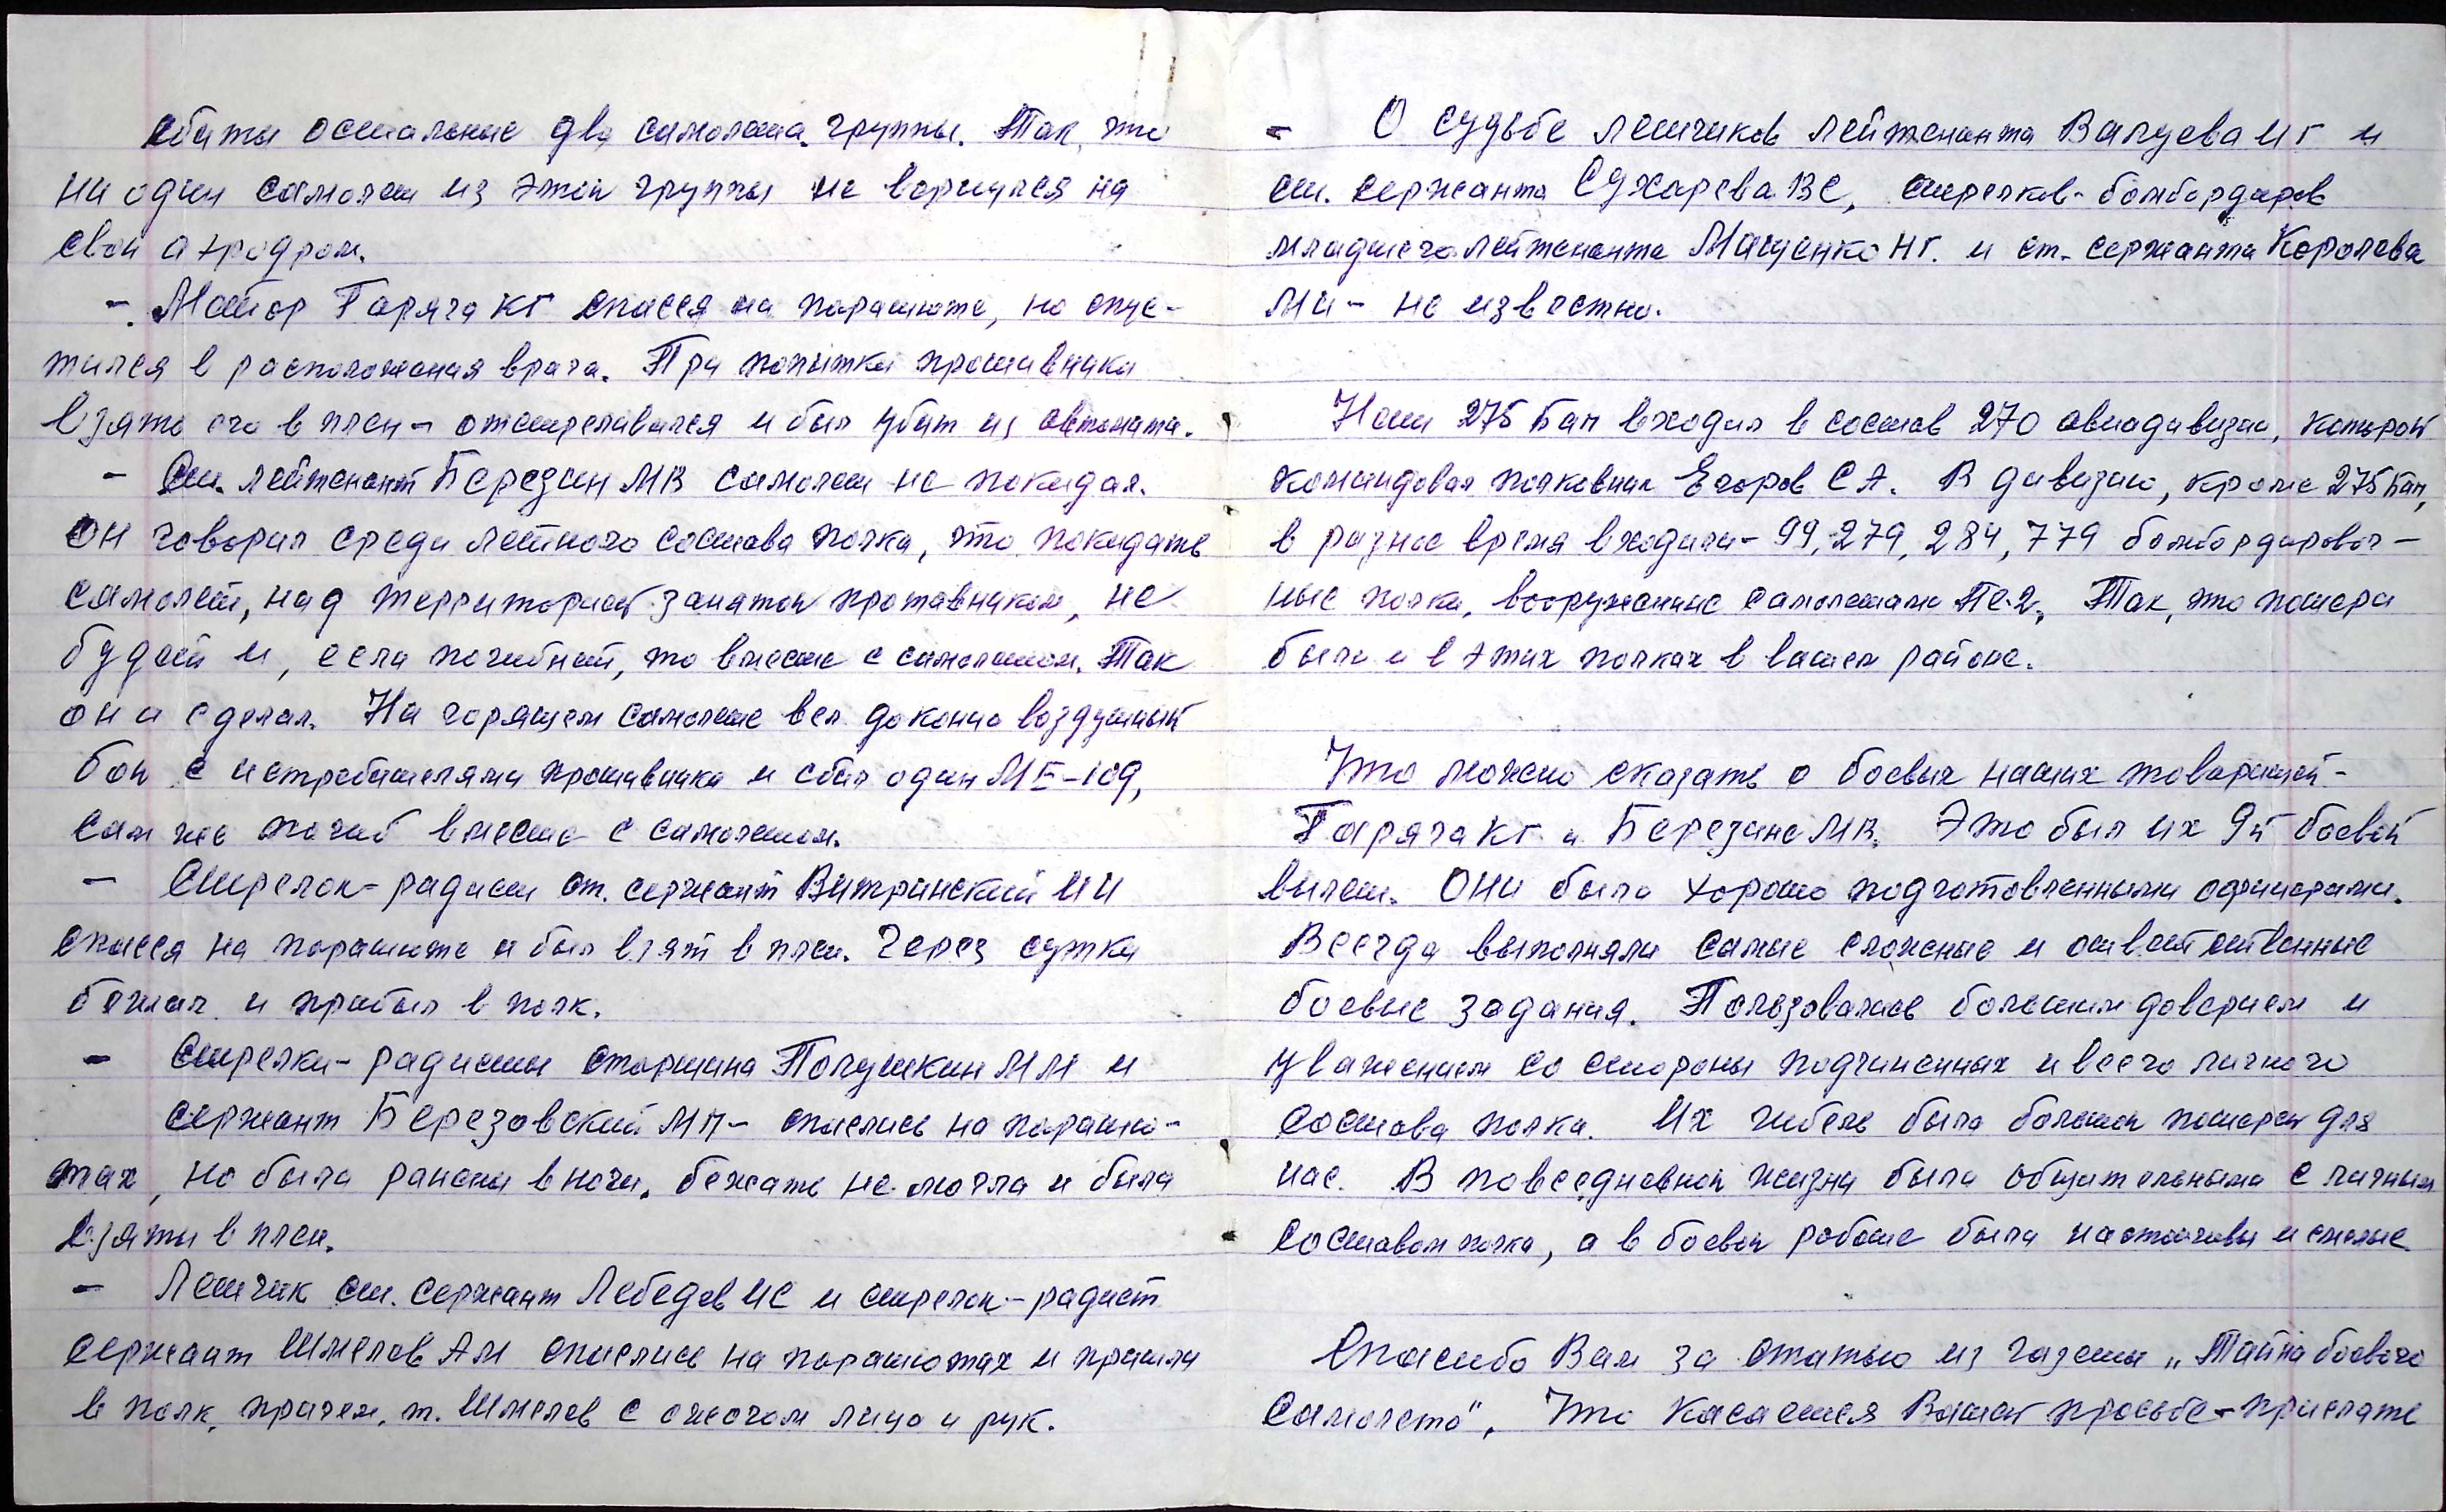 сбиты остальные два самолета группы. Так, что
ни один самолет из этой группы не вернулся на
свой аэродром.
-. Майор Гаряга КГ спасся на парашюте, но опус-
тился в расположения врага. При попытки противника
взять его в плен - отстреливался и был убит из автомата.
- Ст. лейтенант Березин МВ самолет не покидал.
Он говорил среди летного состава полка, что покидать
самолет, над территорией занятой противником, не
будет и, если погибнет, то вместе с самолетом. Так
он и сделал. На горящем самолете вел до конца воздушный
бой с истребителями противника и сбил один МЕ-109,
сам же погиб вместе с самолетом.
- Стрелок-радист ст. сержант Витринский ИИ
спасся на парашюте и был взят в плен. Через сутки
бежал и прибыл в полк.
- Стрелки-радисты старшина Полушкин ММ и
сержант Березовский МП - спаслись на парашю-
тах, но были ранены в ноги. бежать не могли и были
взяты в плен.
- Летчик ст. сержант Лебедев ИС и стрелок-радист
сержант Шмелев АМ спаслись на парашютах и пришли
в полк, причем, т. Шмелев с ожогом лица и рук.
- О судьбе летчиков лейтенанта Валуева ИГ и
ст. сержанта Сухарева ВС, стрелков-бомбардиров
младшего лейтенанта Мащенко НГ. и ст. сержанта Королева
МИ - не известно.
Наш 275 Бап входил в состав 270 авиадивизии, которой
командовал полковник Егоров СА. В дивизию, кроме 275 Бап,
в разное время входили - 99, 279, 284, 779 бомбардировоч-
ные полки, вооруженные самолетами Пе-2. Так, что потери
были и в этих полках в вашем районе.
Что можно сказать о боевых наших товарищей -
Гаряга КГ и Березине МВ. Это был их 9й боевой
вылет. Они были хорошо подготовленными офицерами.
Всегда выполняли самые сложные и ответственные
боевые задания. Пользовались большим доверием и
уважением со стороны подчиненных и всего личного
состава полка. Их гибель была большой потерей для
нас. В повседневной жизни были общительными с личным
составом полка, а в боевой работе были настойчивы и смелые.
Спасибо Вам за статью из газеты „Тайна боевого
самолета". Что касается Вашей просьбе - прислать